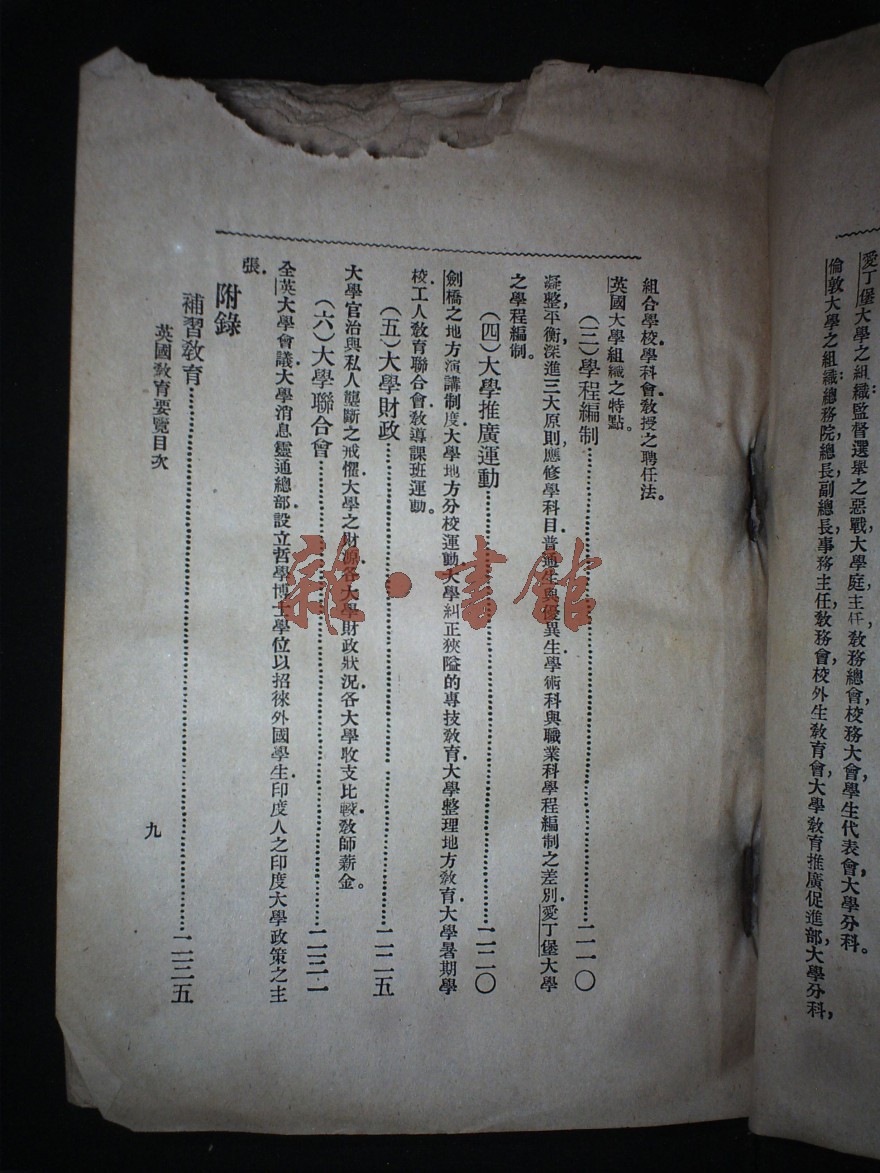 愛丁堡大學之組織監督選舉之惡戰大學庭主任教務總會校務大會學生代表會大學分科。
倫敦大學之組織總務院總長副總長事務主任教務會校外生教育會大學教育推廣促進部大學分科,
組合學校.學科會.教授之聘任法。
英國大學組織之特點。
(三)學程編制……二一〇
凝整,平衡,深進三大原則,應修學科目.普通生與優異生.學術科與職業科學程編制之差別.愛丁堡大學
之學程編制。
(四)大學推廣運動……二二〇
劍橋之地方演講制度.大學地方分校運動.大學糾正狹隘的專技教育.大學整理地方教育.大學暑期學
校.工人教育聯合會.教導課班運動。
(五)大學財政……二二五
大學官治與私人壟斷之戒懼.大學之財源.各大學財政狀況.各大學收支比較.教師薪金。
(六)大學聯合會……二三一
全英大學會議.大學消息靈通總部.設立哲學博士學位以招徠外國學生.印度人之印度大學政策之主
張.
附錄
補習教育……二三五
英國教育要覽目次
九
雜·書館